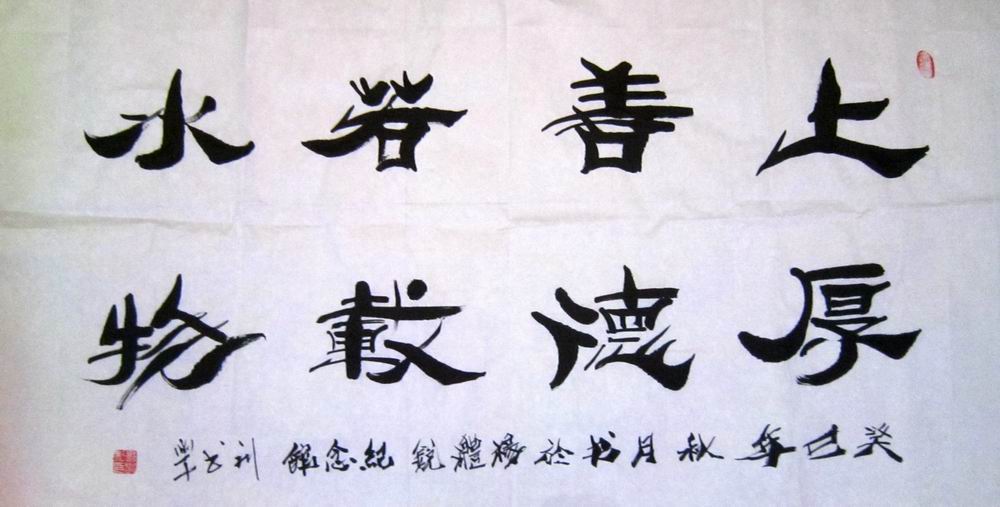 上善若水
厚德载物
癸巳年秋月书於杨體锐紀念館